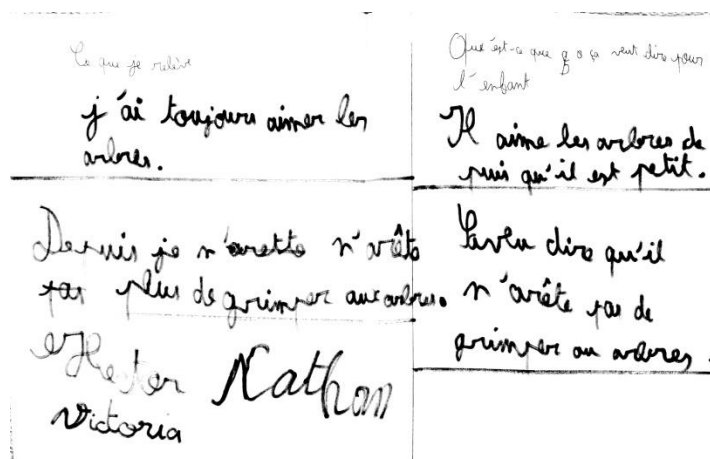 Ce que je relève
j'ai toujours aimer les
arbres.
Depuis je n'arette n'arête
pas plus de grimper aux arbres.
Hester Nathan
Victoria
Que est-ce que ça veut dire pour
l'enfant
Il aime les arbres de
puis qu'il est petit.
Saveu dire qu'il
n'arête pas de
grimper au arbres.